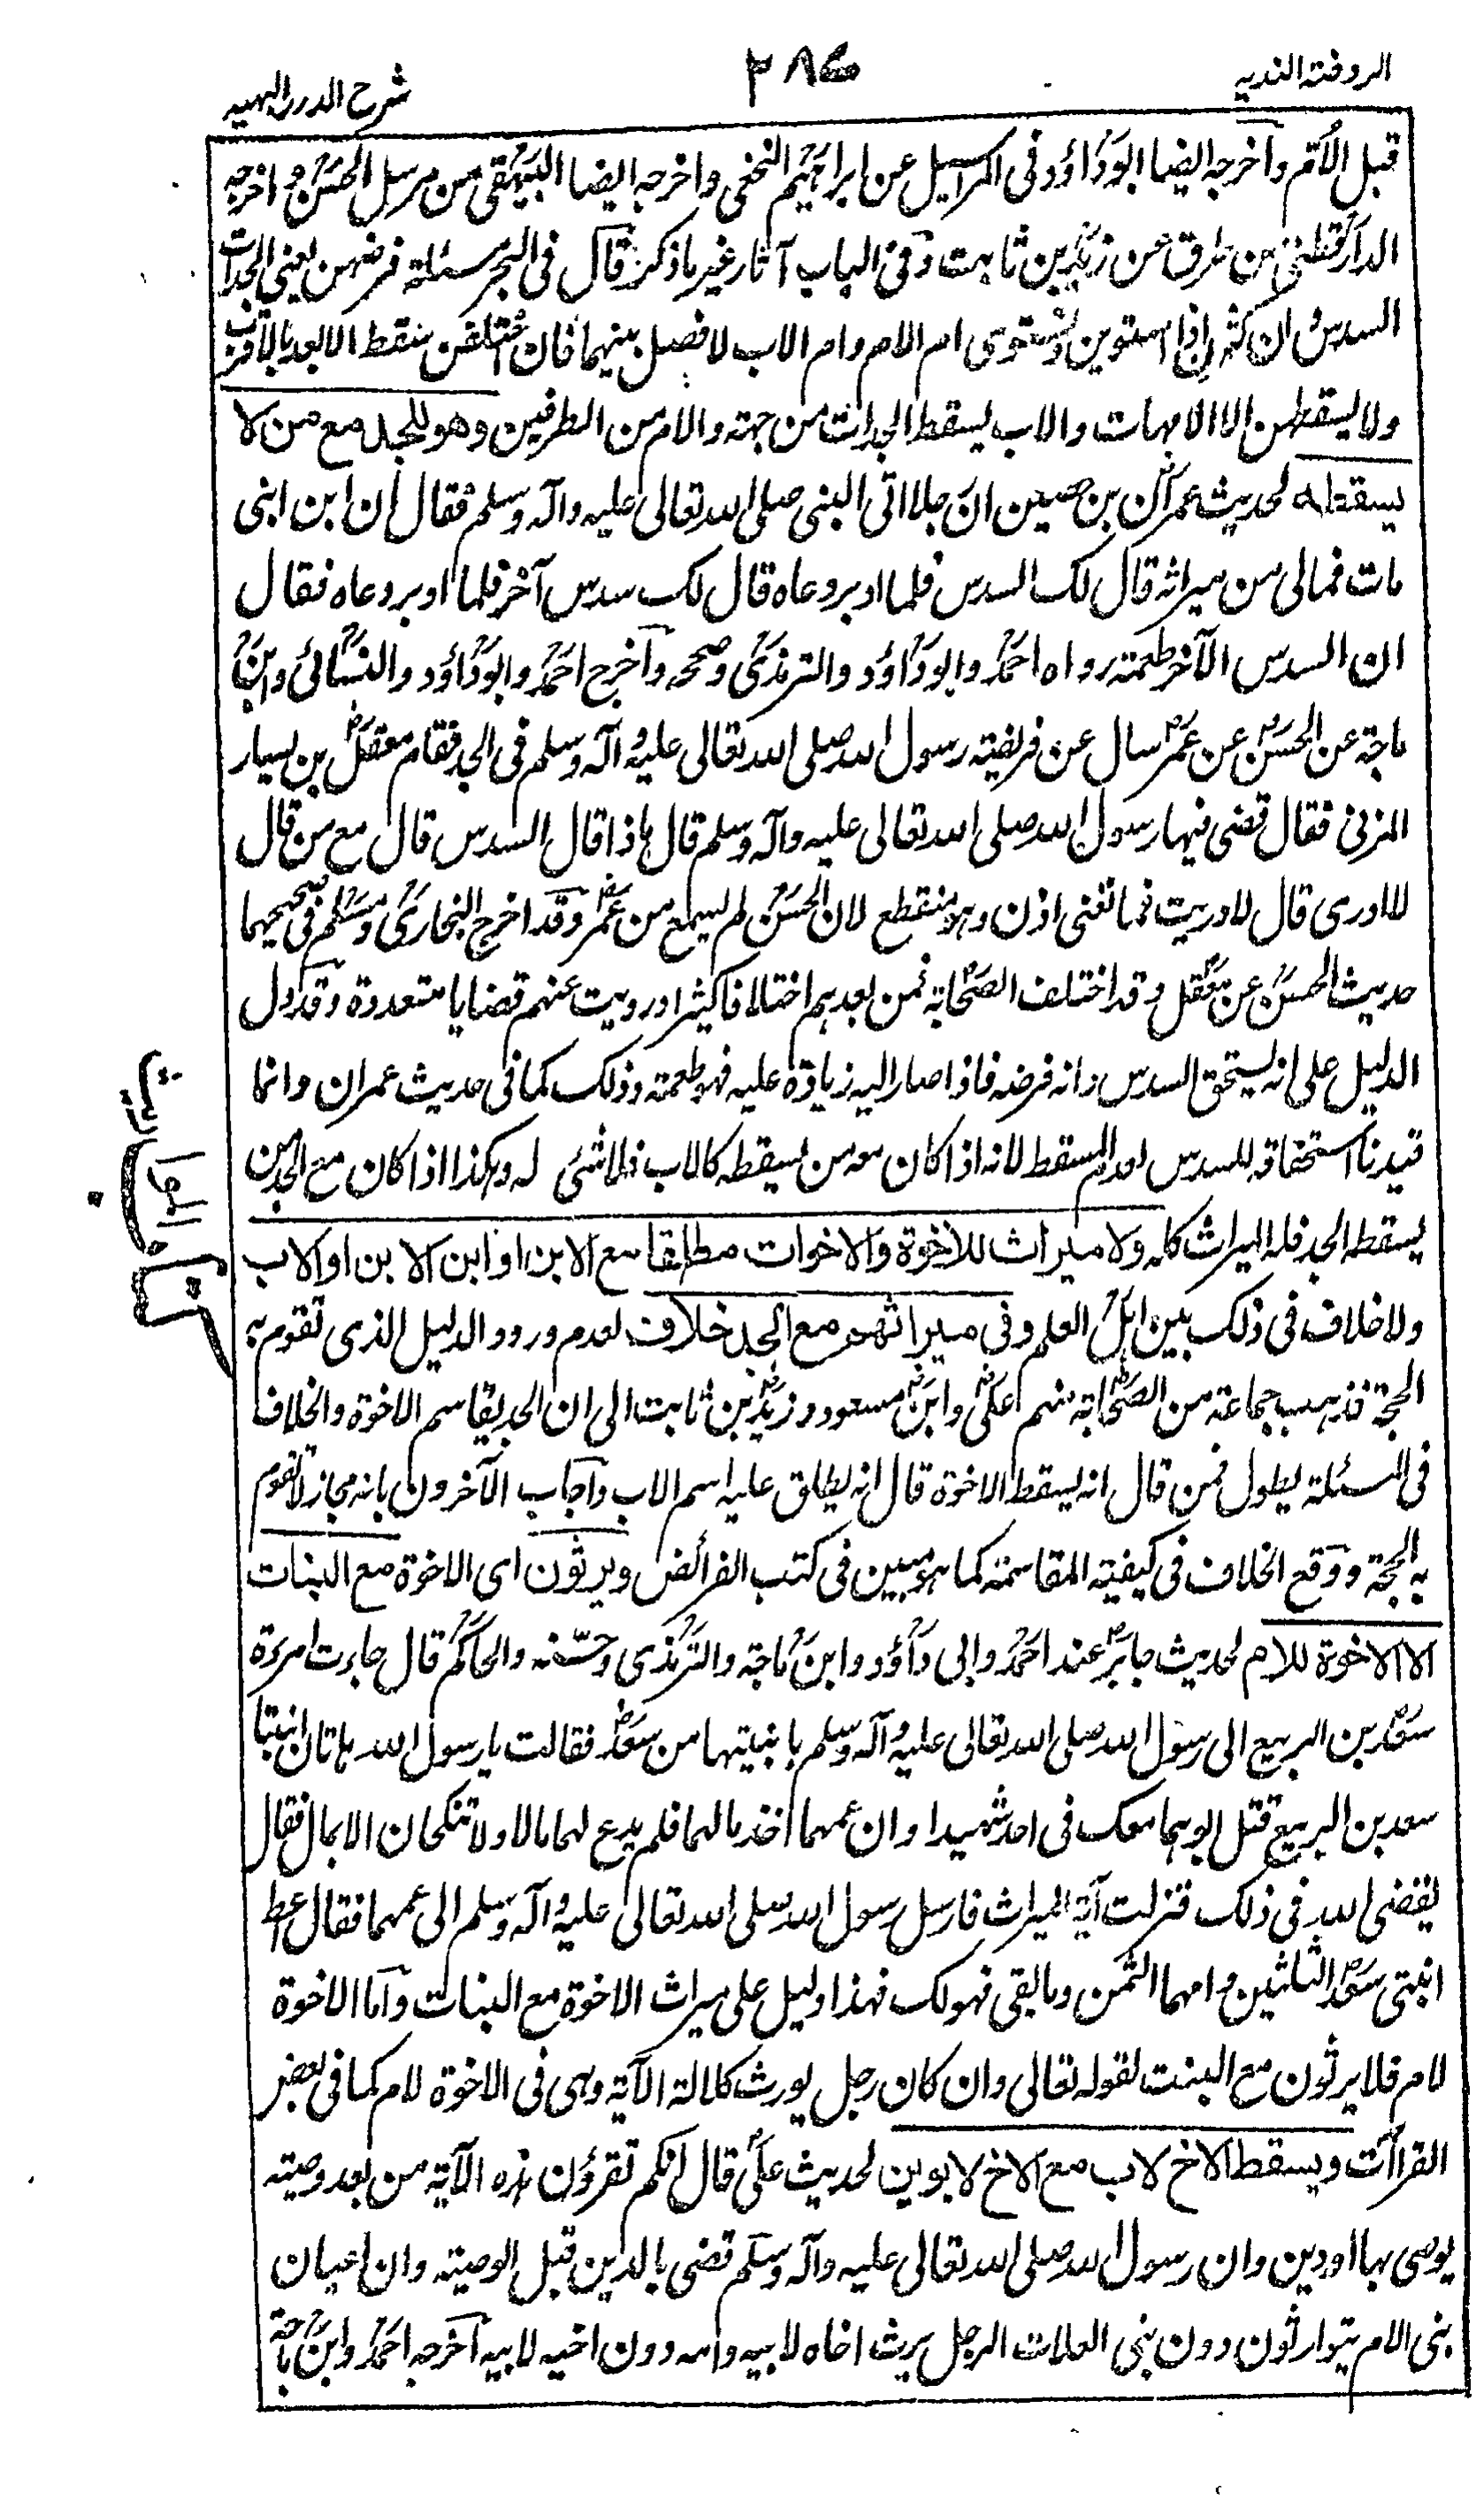 الروضة الندية
٣٨٤
شرح الدرر البهية
قبل الأم وأخرجه ايضا ابوداؤد فى المراسيل عن ابراهيم النخعى واخرجه ايضا البيهقى من مرسل الحسن واخرجه
الدارقطنى من طرق عن زيد بن ثابت وفى الباب آثار غير ما ذكر قال فى البحر مسئلة فرضهن يعنى الجدات
السدس وان كثرن اذا استوين وتستوى ام الام وام الاب لا فصل بينهما فان اختلفن سقط الابعد بالاقرب
ولا يسقطهن الا الامهات والاب يسقط الجدات من جهته والام من الطرفين وهو للجد مع من لا
يسقطه لحديث عمران بن حصين ان رجلا اتى النبى صلى الله تعالى عليه وآله وسلم فقال ان ابن ابنى
مات فمالى من ميراثه قال لك السدس فلما ادبر دعاه قال لك سدس آخر فلما ادبر دعاه فقال
ان السدس الآخر طعمة رواه احمد وابوداؤد والترمذى وصححه وأخرج احمد وابوداؤد والنسائى وابن
ماجة عن الحسن عن عمر سال عن فريضة رسول الله صلى الله تعالى عليه وآله وسلم فى الجد فقام معقل بن يسار
المزنى فقال قضى فيها رسول الله صلى الله تعالى عليه وآله وسلم قال ماذا قال السدس قال مع من قال
لا ادرى قال لا دريت فما تغنى اذن وهو منقطع لان الحسن لم يسمع من عمر وقد اخرج البخارى ومسلم فى صحيحيهما
حديث الحسن عن معقل وقد اختلف الصحابة فمن بعدهم اختلافا كثيرا ورويت عنهم قضايا متعددة وقد دل
الدليل على انه يستحق السدس وانه فرضه فاذا صار اليه زيادة عليه فهو طعمة وذلك كما فى حديث عمران وانما
قيدنا استحقاقه للسدس بعدم المسقط لانه اذا كان معه من يسقطه كالاب فلا شئ له وهكذا اذا كان مع الجد من
يسقطه الجد فله الميراث كله ولا ميراث للاخوة والاخوات مطلقا مع الابن او ابن الابن او الاب
ولا خلاف فى ذلك بين اهل العلم وفى ميراثهم مع الجد خلاف لعدم ورود الدليل الذى تقوم به
الحجة فذهب جماعة من الصحابة منهم على وابن مسعود وزيد بن ثابت الى ان الجد يقاسم الاخوة والخلاف
فى المسئلة يطول فمن قال انه يسقط الاخوة قال انه يطلق عليه اسم الاب وأجاب الآخرون بانه مجاز لا تقوم
به الحجة ووقع الخلاف فى كيفية المقاسمة كما هو مبين فى كتب الفرائض ويرثون اى الاخوة مع البنات
الا الاخوة للام لحديث جابر عند احمد وابى داؤد وابن ماجة والترمذى وحسنه والحاكم قال جاءت امرءة
سعد بن الربيع الى رسول الله صلى الله تعالى عليه وآله وسلم بابنتيها من سعد فقالت يا رسول الله هاتان ابنتا
سعد بن الربيع قتل ابوهما معك فى احد شهيدا وان عمهما اخذ مالهما فلم يدع لهما مالا ولا تنكحان الا بمال فقال
يقضى الله فى ذلك فنزلت آية الميراث فارسل رسول الله صلى الله تعالى عليه وآله وسلم الى عمهما فقال اعط
ابنتى سعد الثلثين وامهما الثمن وما بقى فهو لك فهذا دليل على ميراث الاخوة مع البنات وأما الاخوة
لام فلا يرثون مع البنت لقوله تعالى وان كان رجل يورث كلالة الآية وهى فى الاخوة لام كما فى بعض
القراآت ويسقط الاخ لاب مع الاخ لابوين لحديث على قال انكم تقرؤن هذه الآية من بعد وصية
يوصى بها او دين وان رسول الله صلى الله تعالى عليه وآله وسلم قضى بالدين قبل الوصية وان اعيان
بنى الام يتوارثون دون بنى العلات الرجل يرث اخاه لابيه وامه دون اخيه لابيه اخرجه احمد وابن ماجة